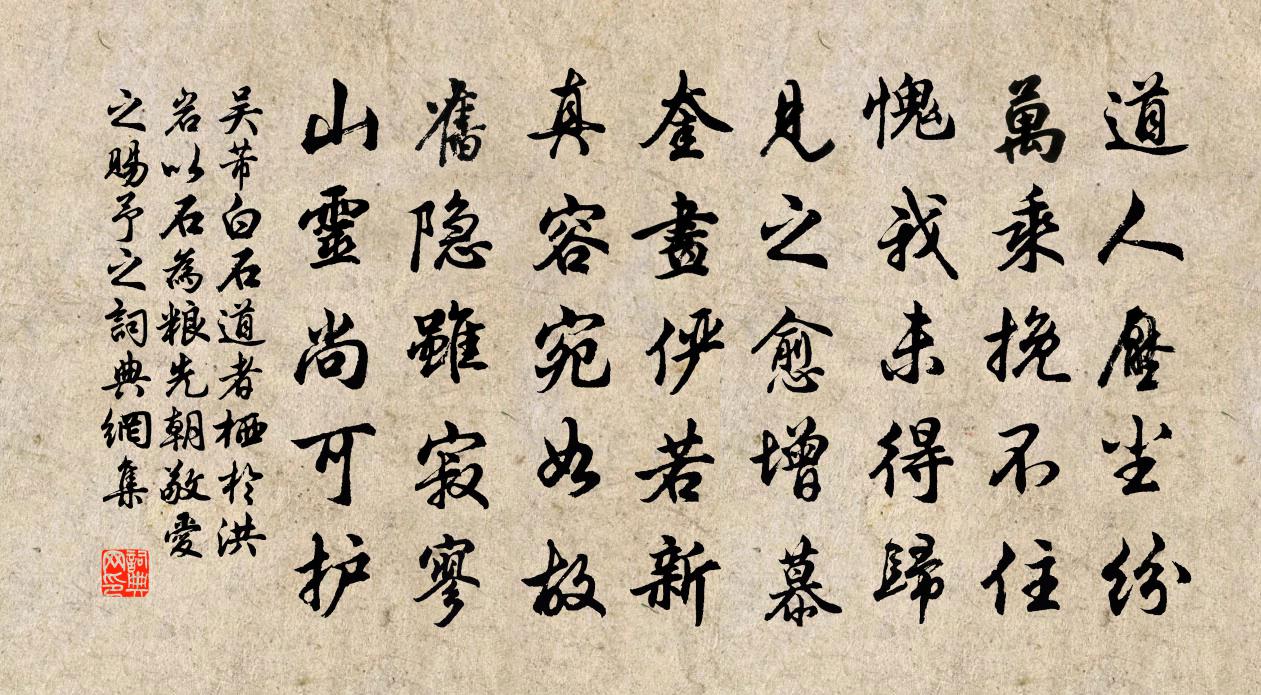 道人壓尘紛
萬乘挽不住
愧我未得歸
見之愈增慕
奎畫俨若新
真容宛如故
舊隐雖寂寥
山靈尚可护
吴芾白石道者栖於洪
岩以石為粮先朝敬愛
之賜予之詞典網集
詞典网印